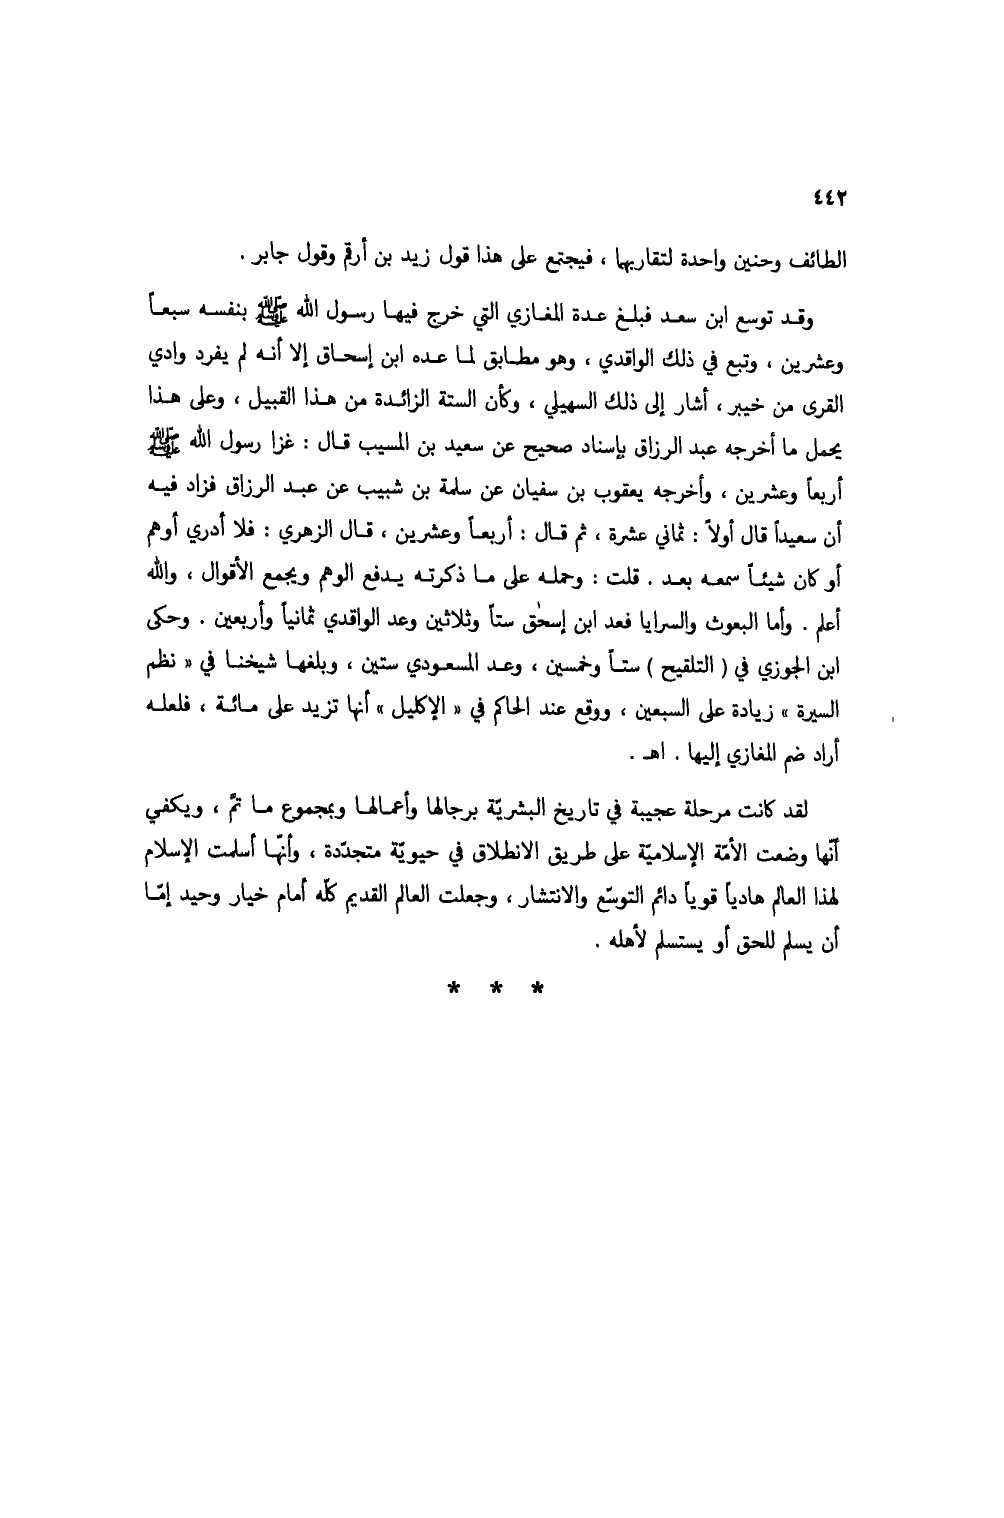 ٤٤٢
الطائف وحنين واحدة لتقاربها ، فيجتمع على هذا قول زيد بن أرقم وقول جابر .
وقد توسع ابن سعد فبلغ عدة المغازي التي خرج فيها رسول الله ﷺ بنفسه سبعاً
وعشرين ، وتبع في ذلك الواقدي ، وهو مطابق لما عده ابن إسحاق إلا أنه لم يفرد وادي
القرى من خيبر ، أشار إلى ذلك السهيلي ، وكأن الستة الزائدة من هذا القبيل ، وعلى هذا
يحمل ما أخرجه عبد الرزاق بإسناد صحيح عن سعيد بن المسيب قال : غزا رسول الله ﷺ
أربعاً وعشرين ، وأخرجه يعقوب بن سفيان عن سلمة بن شبيب عن عبد الرزاق فزاد فيه
أن سعيداً قال أولاً : ثماني عشرة ، ثم قال : أربعاً وعشرين ، قال الزهري : فلا أدري أوهم
أو كان شيئاً سمعه بعد . قلت : وحمله على ما ذكرته يدفع الوهم ويجمع الأقوال ، والله
أعلم . وأما البعوث والسرايا فعد ابن إسحٰق ستاً وثلاثين وعد الواقدي ثمانياً وأربعين . وحكى
ابن الجوزي في ( التلقيح ) ستاً وخمسين ، وعد المسعودي ستين ، وبلغها شيخنا في « نظم
السيرة » زيادة على السبعين ، ووقع عند الحاكم في « الإكليل » أنها تزيد على مائة ، فلعله
أراد ضم المغازي إليها . اهـ .
لقد كانت مرحلة عجيبة في تاريخ البشريّة برجالها وأعمالها وبمجموع ما تمَّ ، ويكفي
أنّها وضعت الأمّة الإسلاميّة على طريق الانطلاق في حيويّة متجدّدة ، وأنهّا أسلمت الإسلام
لهذا العالم هادياً قوياً دائم التوسّع والانتشار ، وجعلت العالم القديم كلّه أمام خيار وحيد إمّا
أن يسلم للحق أو يستسلم لأهله .
* * *